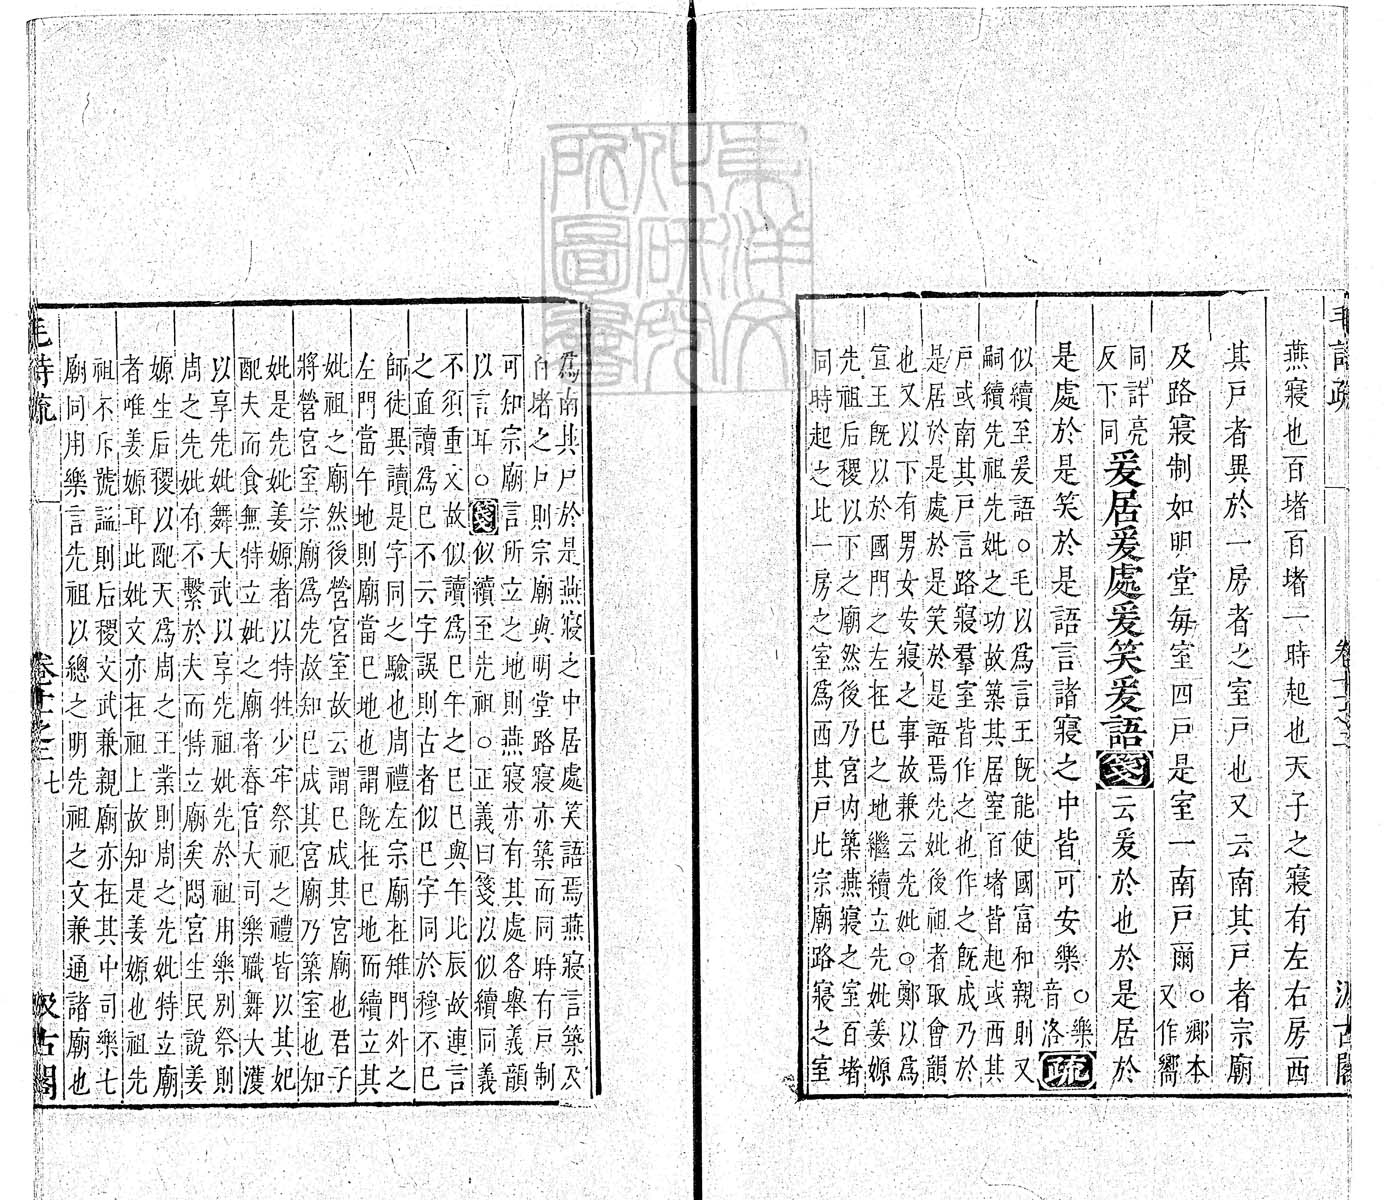 燕寢也百堵百堵一時起也天子之寢有左右房西
其戸者異於一房者之室戸也又云南其戸者宗廟
及路寢制如明堂每室四戸是室一南戸爾○鄉本
又作嚮
同許亮
反下同爰居爰處爰笑爰語箋云爰於也於是居於
是處於是笑於是語言諸寢之中皆可安樂○樂
音洛疏
似續至爰語○毛以為言王既能使國富和親則又
嗣續先祖先妣之功故築其居室百堵皆起或西其
戸或南其戸言路寢羣室皆作之也作之既成乃於
是居於是處於是笑於是語焉先妣後祖者取會韻
也又以下有男女安寢之事故兼云先妣○鄭以為
宣王既以於國門之左在巳之地繼續立先妣姜嫄
先祖后稷以下之廟然後乃宮内築燕寢之室百堵
同時起之比一房之室為西其戸比宗廟路寢之室
為南其戸於是燕寢之中居處笑語焉燕寢言築及
百堵之戸則宗廟與明堂路寢亦築而同時有戸制
可知宗廟言所立之地則燕寢亦有其處各舉義韻
以言耳○箋似續至先祖○正義曰箋以似續同義
不須重文故似讀為巳午之巳巳與午比辰故連言
之直讀為巳不云字誤則古者似巳字同於穆不已
師徒異讀是字同之驗也周禮左宗廟在雉門外之
左門當午地則廟當巳地也謂既在巳地而續立其
妣祖之廟然後營宮室故云謂巳成其宮廟也君子
將營宮室宗廟為先故知巳成其宮廟乃築室也知
妣是先妣姜嫄者以特牲少牢祭祀之禮皆以其妃
配夫而食無特立妣之廟者春官大司樂職舞大濩
以享先妣舞大武以享先祖妣先於祖用樂別祭則
周之先妣有不繫於夫而特立廟矣閟宮生民說姜
嫄生后稷以配天為周之王業則周之先妣特立廟
者唯姜嫄耳此妣文亦在祖上故知是姜嫄也祖先
祖不斥號謚則后稷文武兼親廟亦在其中司樂七
廟同用樂言先祖以總之明先祖之文兼通諸廟也
毛詩疏
卷十一之二
七
汲古閣